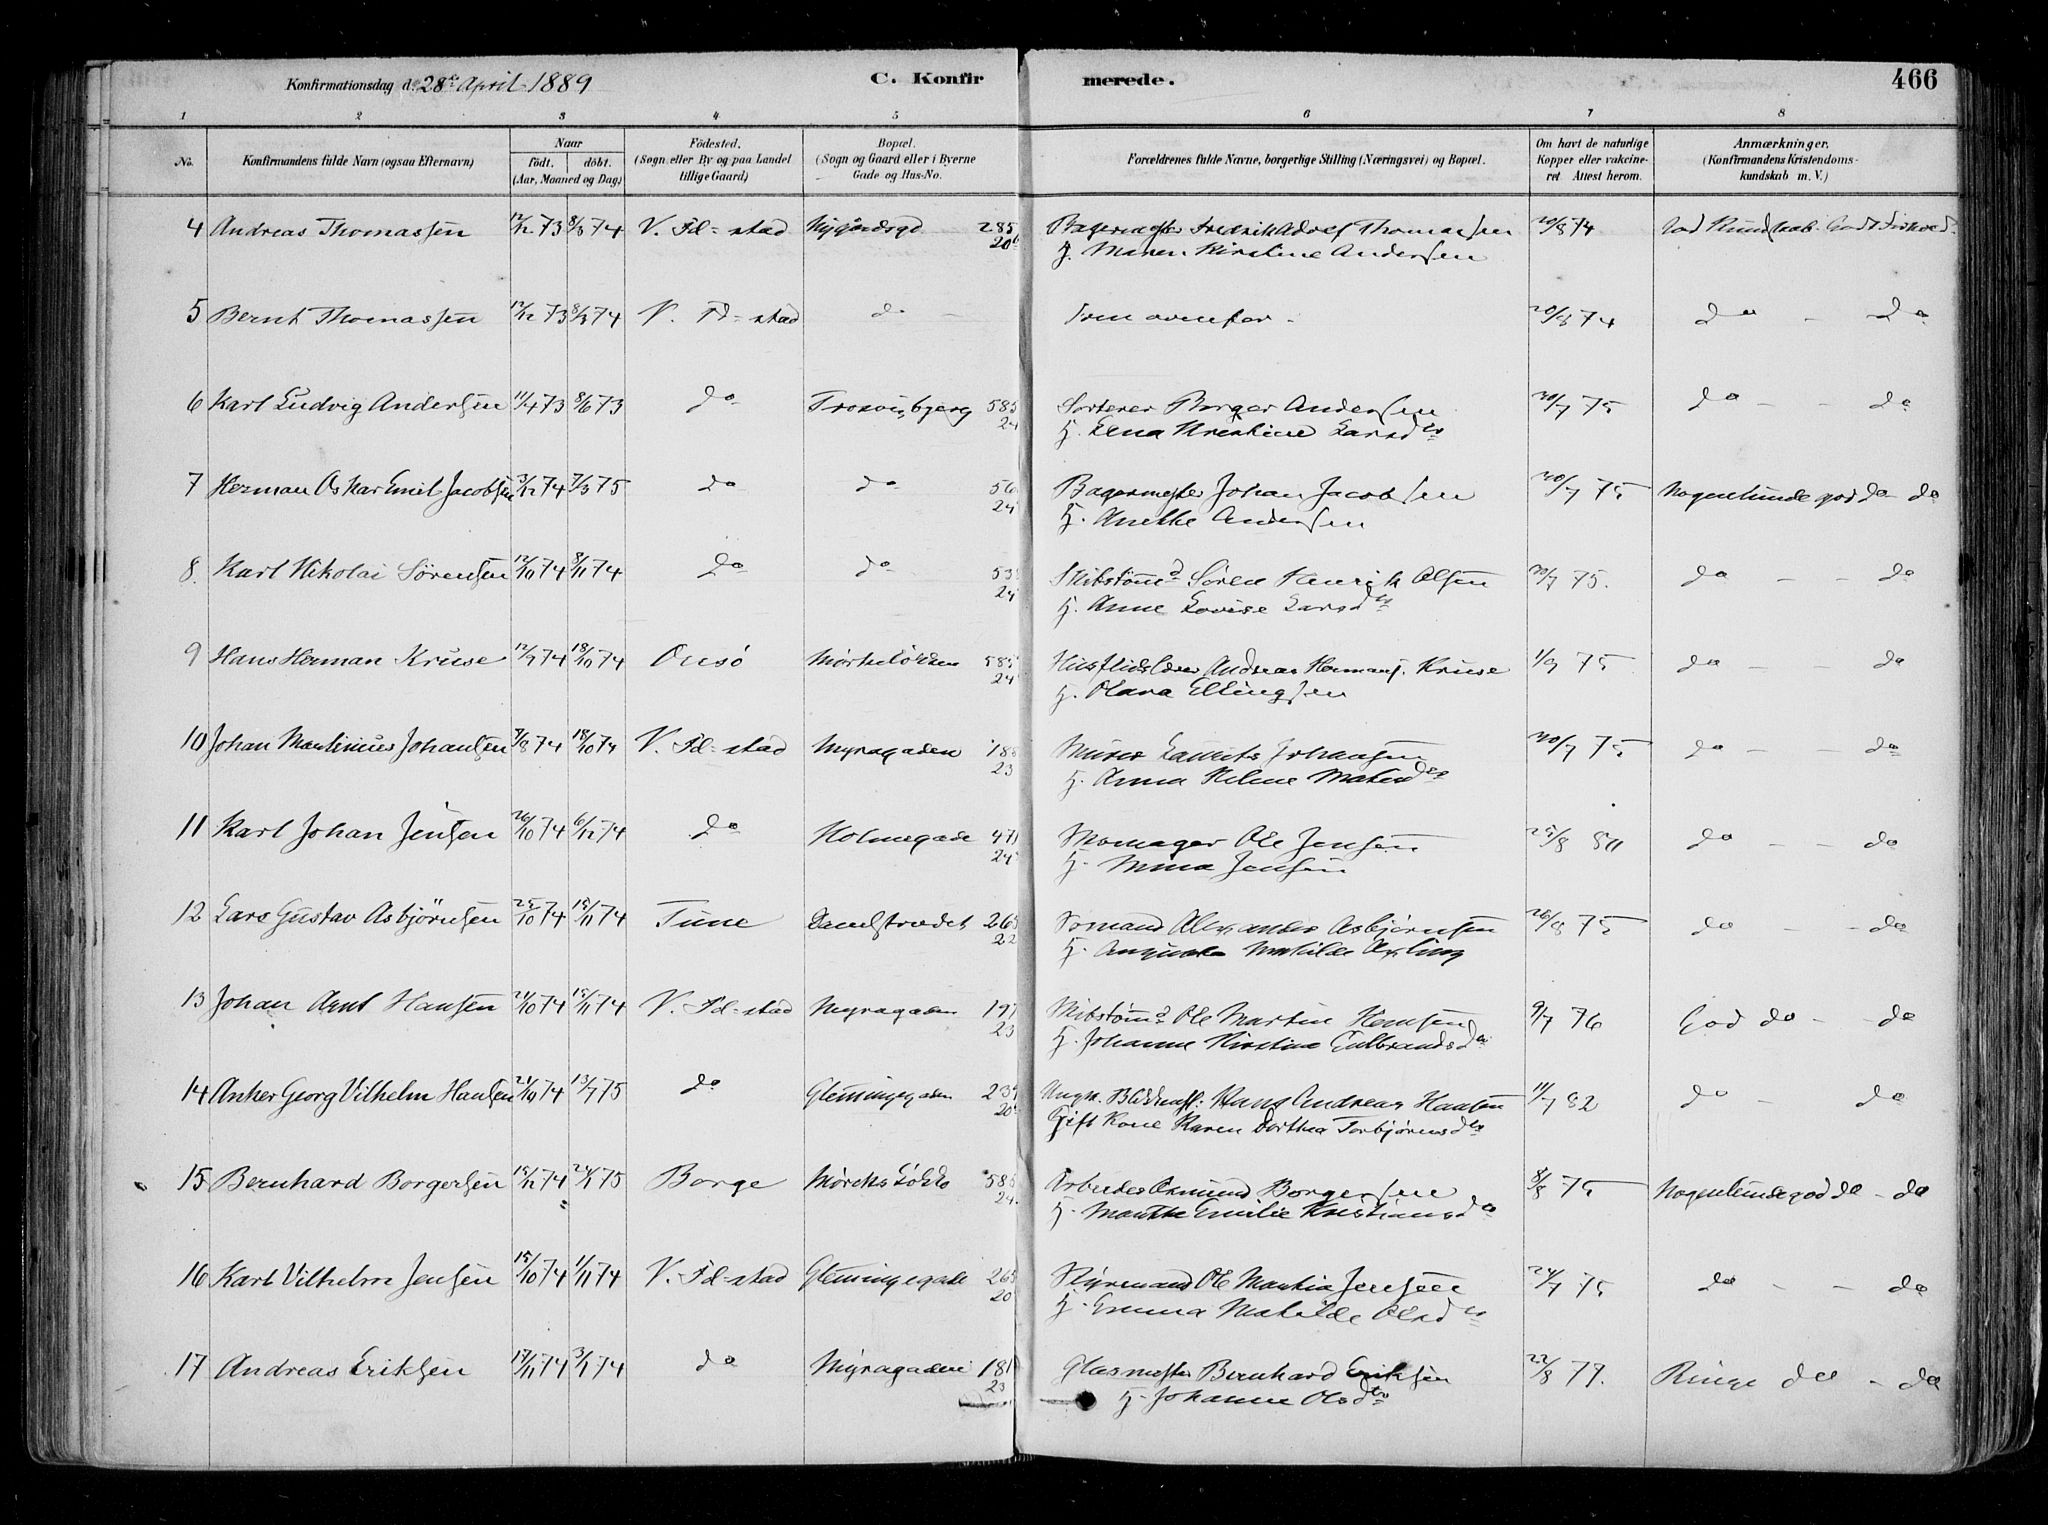 Konfirmationsdag d. 28de April 1889
C. Konfirmerede.
466
1 2 3 4 5 6 7 8
No. Konfirmandens fulde Navn (ogsaa Efternavn) Naar født. døbt. (Aar, Maaned og Dag) Fødested. (Sogn eller By og paa Landet tillige Gaard) Bopæl. (Sogn og Gaard eller i Byerne Gade og Hus-No. Forældrenes fulde Navne, borgerlige Stilling (Næringsvei) og Bopæl. Om havt de naturlige Kopper eller vakcineret. Attest herom. Anmærkninger. (Konfirmandens Kristendomskundskab m. V.)
4 Andreas Thomassen 12/12 73 8/3 74 V. Fd-stad 285 Bagermester Fredrik Adolf Thomassen 20/8 74 God Kundskab. Godt Forhold.
20
H. Maren Kirstine Andersen
5 Bernt Thomassen 12/12 73 8/3 74 V. Fd-stad do Som ovenfor - 20/8 74 do - do
6 Karl Ludvig Andersen 11/4 73 8/6 73 do Trosvigbjerg 585 Sorterer Borger Andersen 20/7 75 do - - do
24
H. Lena Kristine Larsdtr
7 Herman Oskar Emil Jacobsen 3/12 74 7/3 75 do do 56 Bagermester Johan Jacobsen 20/7 75 Nogenlunde god do - do
24
H. Anette Andersen
8. Karl Nikolai Sørensen 12/10 74 8/11 74 do do 53 Skibstømmd Søren Henrik Olsen 20/7 75. do - - do
24
H. Anne Lovise Larsdtr
9 Hans Herman Kruse 12/9 74 18/10 74 Onsø 585 Husflidslærer Andreas Hermans. Kruse 1/9 75 do - - do
24
H. Olava Ellingsen
10 Johan Martinius Johansen 7/8 74 18/10 74 V. Fd-stad Myragaden 188 Murer Laurits Johansen 20/7 75 do - - do
23
H. Anna Helene
11 Karl Johan Jensen 26/10 74 6/12 74 do Holmegade 471 Ole Jensen 25/8 80 do - - do
24
H. Mina Jensen
12 Lars Gustav Asbjørnsen 25/10 74 15/11 74 Tune 265 Sømand Alexander Asbjørnsen 26/8 75 do - - do
22
H. Matilde
13 Johan Arnt Hansen 21/10 74 15/11 74 V. Fd-stad Myragaden 197 Skibstømmd Ole Martin Hansen 9/7 76 God do - - do
23
H. Johanne Kirstine Gulbrandsdtr
14 Anker Georg Vilhelm Hansen 21/10 74 13/7 75 do Glemmingegaden 239 Ungk. Hans Andreas Hansen 11/7 82 do - do
20
Gift Kone Karen Dorthea Torbjørnsdtr
15 Bernhard Borgersen 15/12 74 24/1 75 Borge 585 Arbeider Osmund Borgersen 8/8 75 Nogenlunde god do - do
24
H. Marthe Emilie Kristiansdtr
16 Karl Vilhelm Jensen 15/10 74 1/11 74 V. Fd-stad Glemmingegade 265 Styrmand Ole Martin Jensen 24/7 75 do - - do
20
H. Emma Matilde Olsdtr
17 Andreas Eriksen 17/11 74 3/1 74 do Myragaden 181 Glasmester Bernhard Eriksen 22/8 77. Ringe do - do
23
H. Johanne Olsdtr